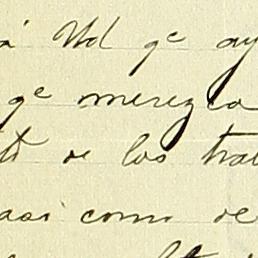 á Ud qe ay
qe merezca
de los tra
asi como de